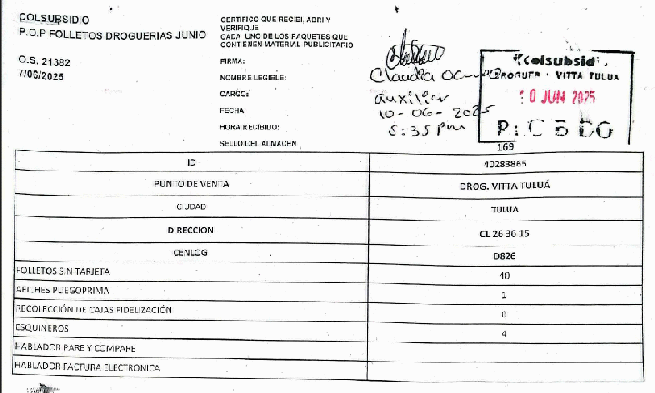 COLSUBSIDIO
P.O.P FOLLETOS DROGUERIAS JUNIO
O.S. 21382
7/06/2025
CERTIFICO QUE RECIBI, ABRI Y
VERIFIQUE
CADA UNO DE LOS PAQUETES QUE
CONTENIEN MATERIAL PUBLICITARIO
FIRMA:
NOMBRE LEGIBLE: Claudia
CARGO: auxiliar
FECHA 10-06-2025
HORA RECIBIDO: 5:35 Pm
SELLO DEL ALMACEN
Colsubsidi
VITTA TULUA
10 JUN 2025
169
ID 40283865
PUNTO DE VENTA DROG. VITTA TULUÁ
CIUDAD TULUA
DIRECCION CL 26 36 15
CENLOG D826
FOLLETOS SIN TARJETA 40
AFICHES PLIEGOPRIMA 1
RECOLECCIÓN DE CAJAS FIDELIZACIÓN 0
ESQUINEROS 4
HABLADOR PARE Y COMPARE
HABLADOR FACTURA ELECTRONICA